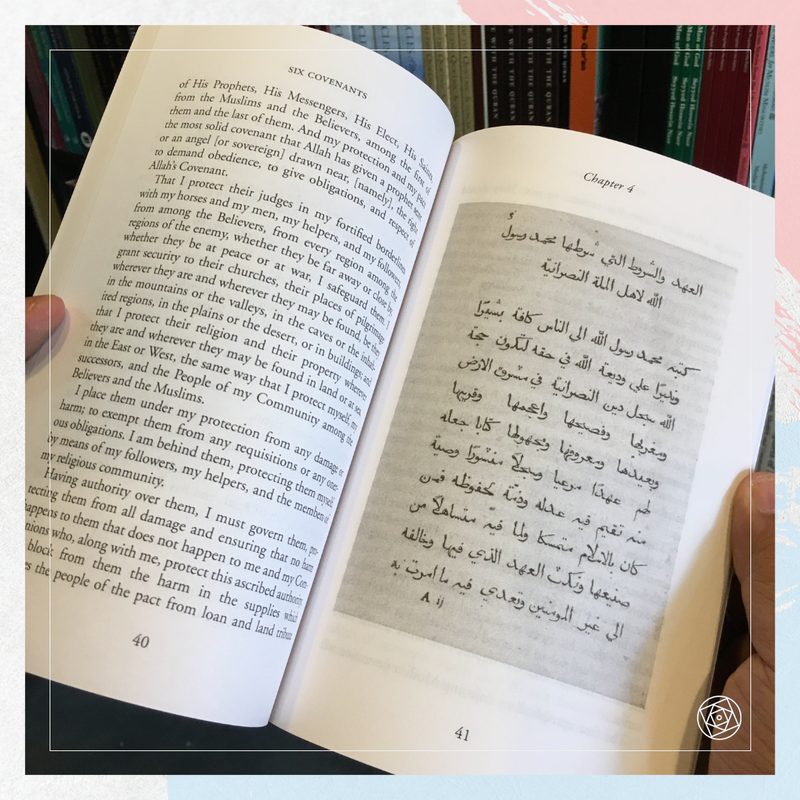 SIX COVENANTS
of His Prophets, His Messengers, His Elect, His Saints,
from the Muslims and the Believers, among the first of
them and the last of them. And my protection and my pact
the most solid covenant that Allah has given a prophet sent
or an angel [or sovereign] drawn near, [namely], the right
to demand obedience, to give obligations, and respect of
Allah's Covenant.
That I protect their judges in my fortified borderlines
with my horses and my men, my helpers, and my followers,
from among the Believers, from every region among the
regions of the enemy, whether they be far away or close by,
whether they be at peace or at war, I safeguard them. I
grant security to their churches, their places of pilgrimage
wherever they are and wherever they may be found, be they
in the mountains or the valleys, in the caves or the inhab-
ited regions, in the plains or the desert, or in buildings; and
that I protect their religion and their property wherever
they are and wherever they may be found in land or at sea,
in the East or West, the same way that I protect myself, my
successors, and the People of my Community among the
Believers and the Muslims.
I place them under my protection from any damage or
harm; to exempt them from any requisitions or any oner-
ous obligations. I am behind them, protecting them myself
by means of my followers, my helpers, and the members of
my religious community.
Having authority over them, I must govern them, pro-
tecting them from all damage and ensuring that no harm
happens to them that does not happen to me and my Com-
nions who, along with me, protect this ascribed authority.
block from them the harm in the supplies which
es the people of the pact from loan and land tribute
40
Chapter 4
العهد والشروط التي شرطها محمد رسول
الله لاهل الملة النصرانية
كتبه محمد رسول الله الي الناس كافة بشيرا
ونذيرا علي وديعة الله في خلقه لتكون حجة
الله سجل دين النصرانية في مشرق الارض
ومغربها وفصيحها واعجمها وقريبها
وبعيدها ومعروفها ومجهولها كتابا جعله
لهم عهدا مرعيا وسجلا منشورا وصية
منه تقيم فيه عدله وذمة محفوظة فمن
كان بالاسلام متمسكا ولما فيه متساهلا من
صنيعها ونكث العهد الذي فيها وخالفه
الي غير المومنين وتعدي فيه ما امرت به
A ij
41
A Man of God
Seyyed Hossein Nasr
The Qur'an
E WITH THE QURAN